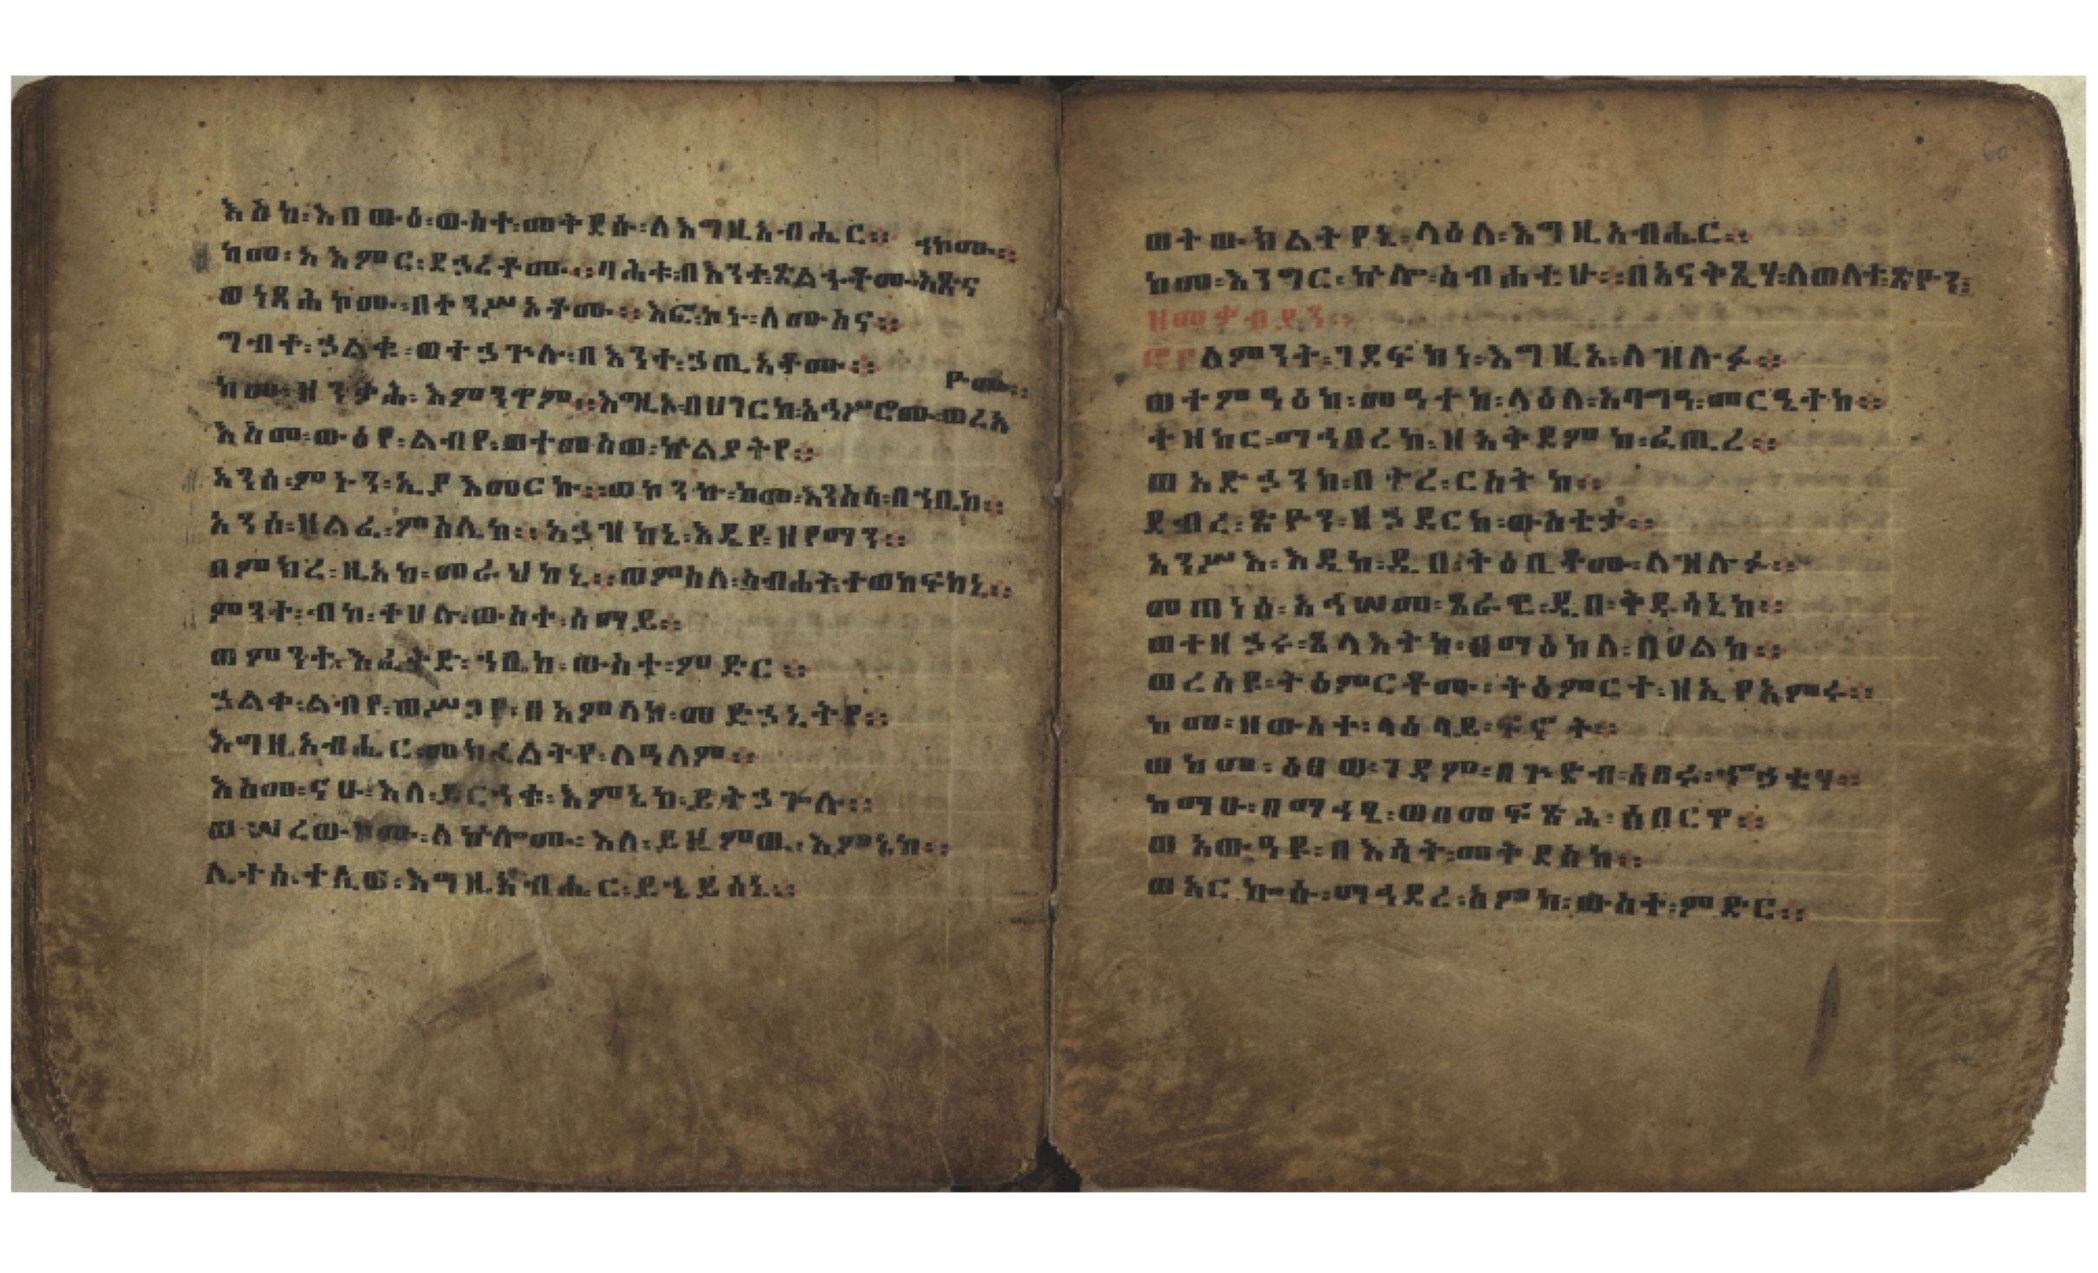 እስከ፡እበውዕ፡ውስተ፡መቅደሱ፡ለእግዚአብሔር።
ከመ፡አእምር፡ደኃሪቶሙ።ባሕቱ፡በእንተ፡ጽልሑቶሙ፡አጽና
ንኮሙ።
ወነዳሕኮሙ፡በተንሥኦቶሙ።እፎ፡ኮኑ፡ለሙስና።
ግብተ፡ኃልቁ፡ወተኃጕሉ፡በእንተ፡ኃጢአቶሙ።
ከመ፡ዘንቃሕ፡እምንዋም።እግዚኦ፡በሀገርከ፡አኀሥሮሙ፡ወረአ
ዮሙ።
እስመ፡ውዕየ፡ልብየ፡ወተመስወ፡ኵልያትየ።
አንሰ፡ምኑን፡ኢያእመርኩ።ወኮንኩ፡ከመ፡እንስሳ፡በኀቤከ።
አንሰ፡ዘልፈ፡ምስሌከ።አኃዝከኒ፡እዴየ፡ዘየማን።
በምክረ፡ዚአከ፡መራህከኒ።ወምስለ፡ስብሐት፡ተወከፍከኒ።
ምንተ፡ብከ፡ተሀሉ፡ውስተ፡ሰማይ።
ወምንተ፡እፈቅድ፡ኀቤከ፡ውስተ፡ምድር።
ኃልቀ፡ልብየ፡ወሥጋየ፡በአምላከ፡መድኃኒትየ።
እግዚአብሔር፡መክፈልትየ፡ለዓለም።
እስመ፡ናሁ፡እለ፡ይርኅቁ፡እምኔከ፡ይትኃጐሉ።
ወሠረውኮሙ፡ለኵሎሙ፡እለ፡ይዜምዉ፡እምኔከ።
ሊተሰ፡ተሊወ፡እግዚአብሔር፡ይኄይሰኒ።
ወትውክልትየኒ፡ላዕለ፡እግዚአብሔር።
ከመ፡እንግር፡ኵሎ፡ስብሐቲሁ።በአናቅጺሃ፡ለወለተ፡ጽዮን፡
ለምንት፡ገደፍከነ፡እግዚአ፡ለዝሉፉ።
ወተምዓዕከ፡መዓተከ፡ላዕለ፡አባግዓ፡መርዔትከ።
ተዘከር፡ማኅበረከ፡ዘአቅደምከ፡ፈጢረ።
ወአድኃንከ፡በትረ፡ርስትከ።
ደብረ፡ጽዮን፡ዘኃደርከ፡ውስቴታ።
አንሥእ፡እዴከ፡ዲበ፡ትዕቢቶሙ፡ለዝሉፉ።
መጠነዝ፡አኅሠመ፡ጸራዊ፡ዲበ፡ቅዱሳኒከ።
ወተዘኃሩ፡ጸላእትከ፡በማዕከለ፡በዓልከ።
ወረሰዩ፡ትዕምርቶሙ፡ትዕምርተ፡ዘኢየአምሩ።
ከመ፡ዘውስተ፡ላዕላይ፡ፍኖት።
ወከመ፡ዕፀወ፡ገዳም፡በጕድብ፡ሰበሩ፡ኆኃቲሃ።
ከማሁ፡በማኅፄ፡ወበመፍጽሕ፡ሰበርዋ።
ወአውዓዩ፡በእሳት፡መቅደሰከ።
ወአርኰሱ፡ማኅደረ፡ስምከ፡ውስተ፡ምድር።